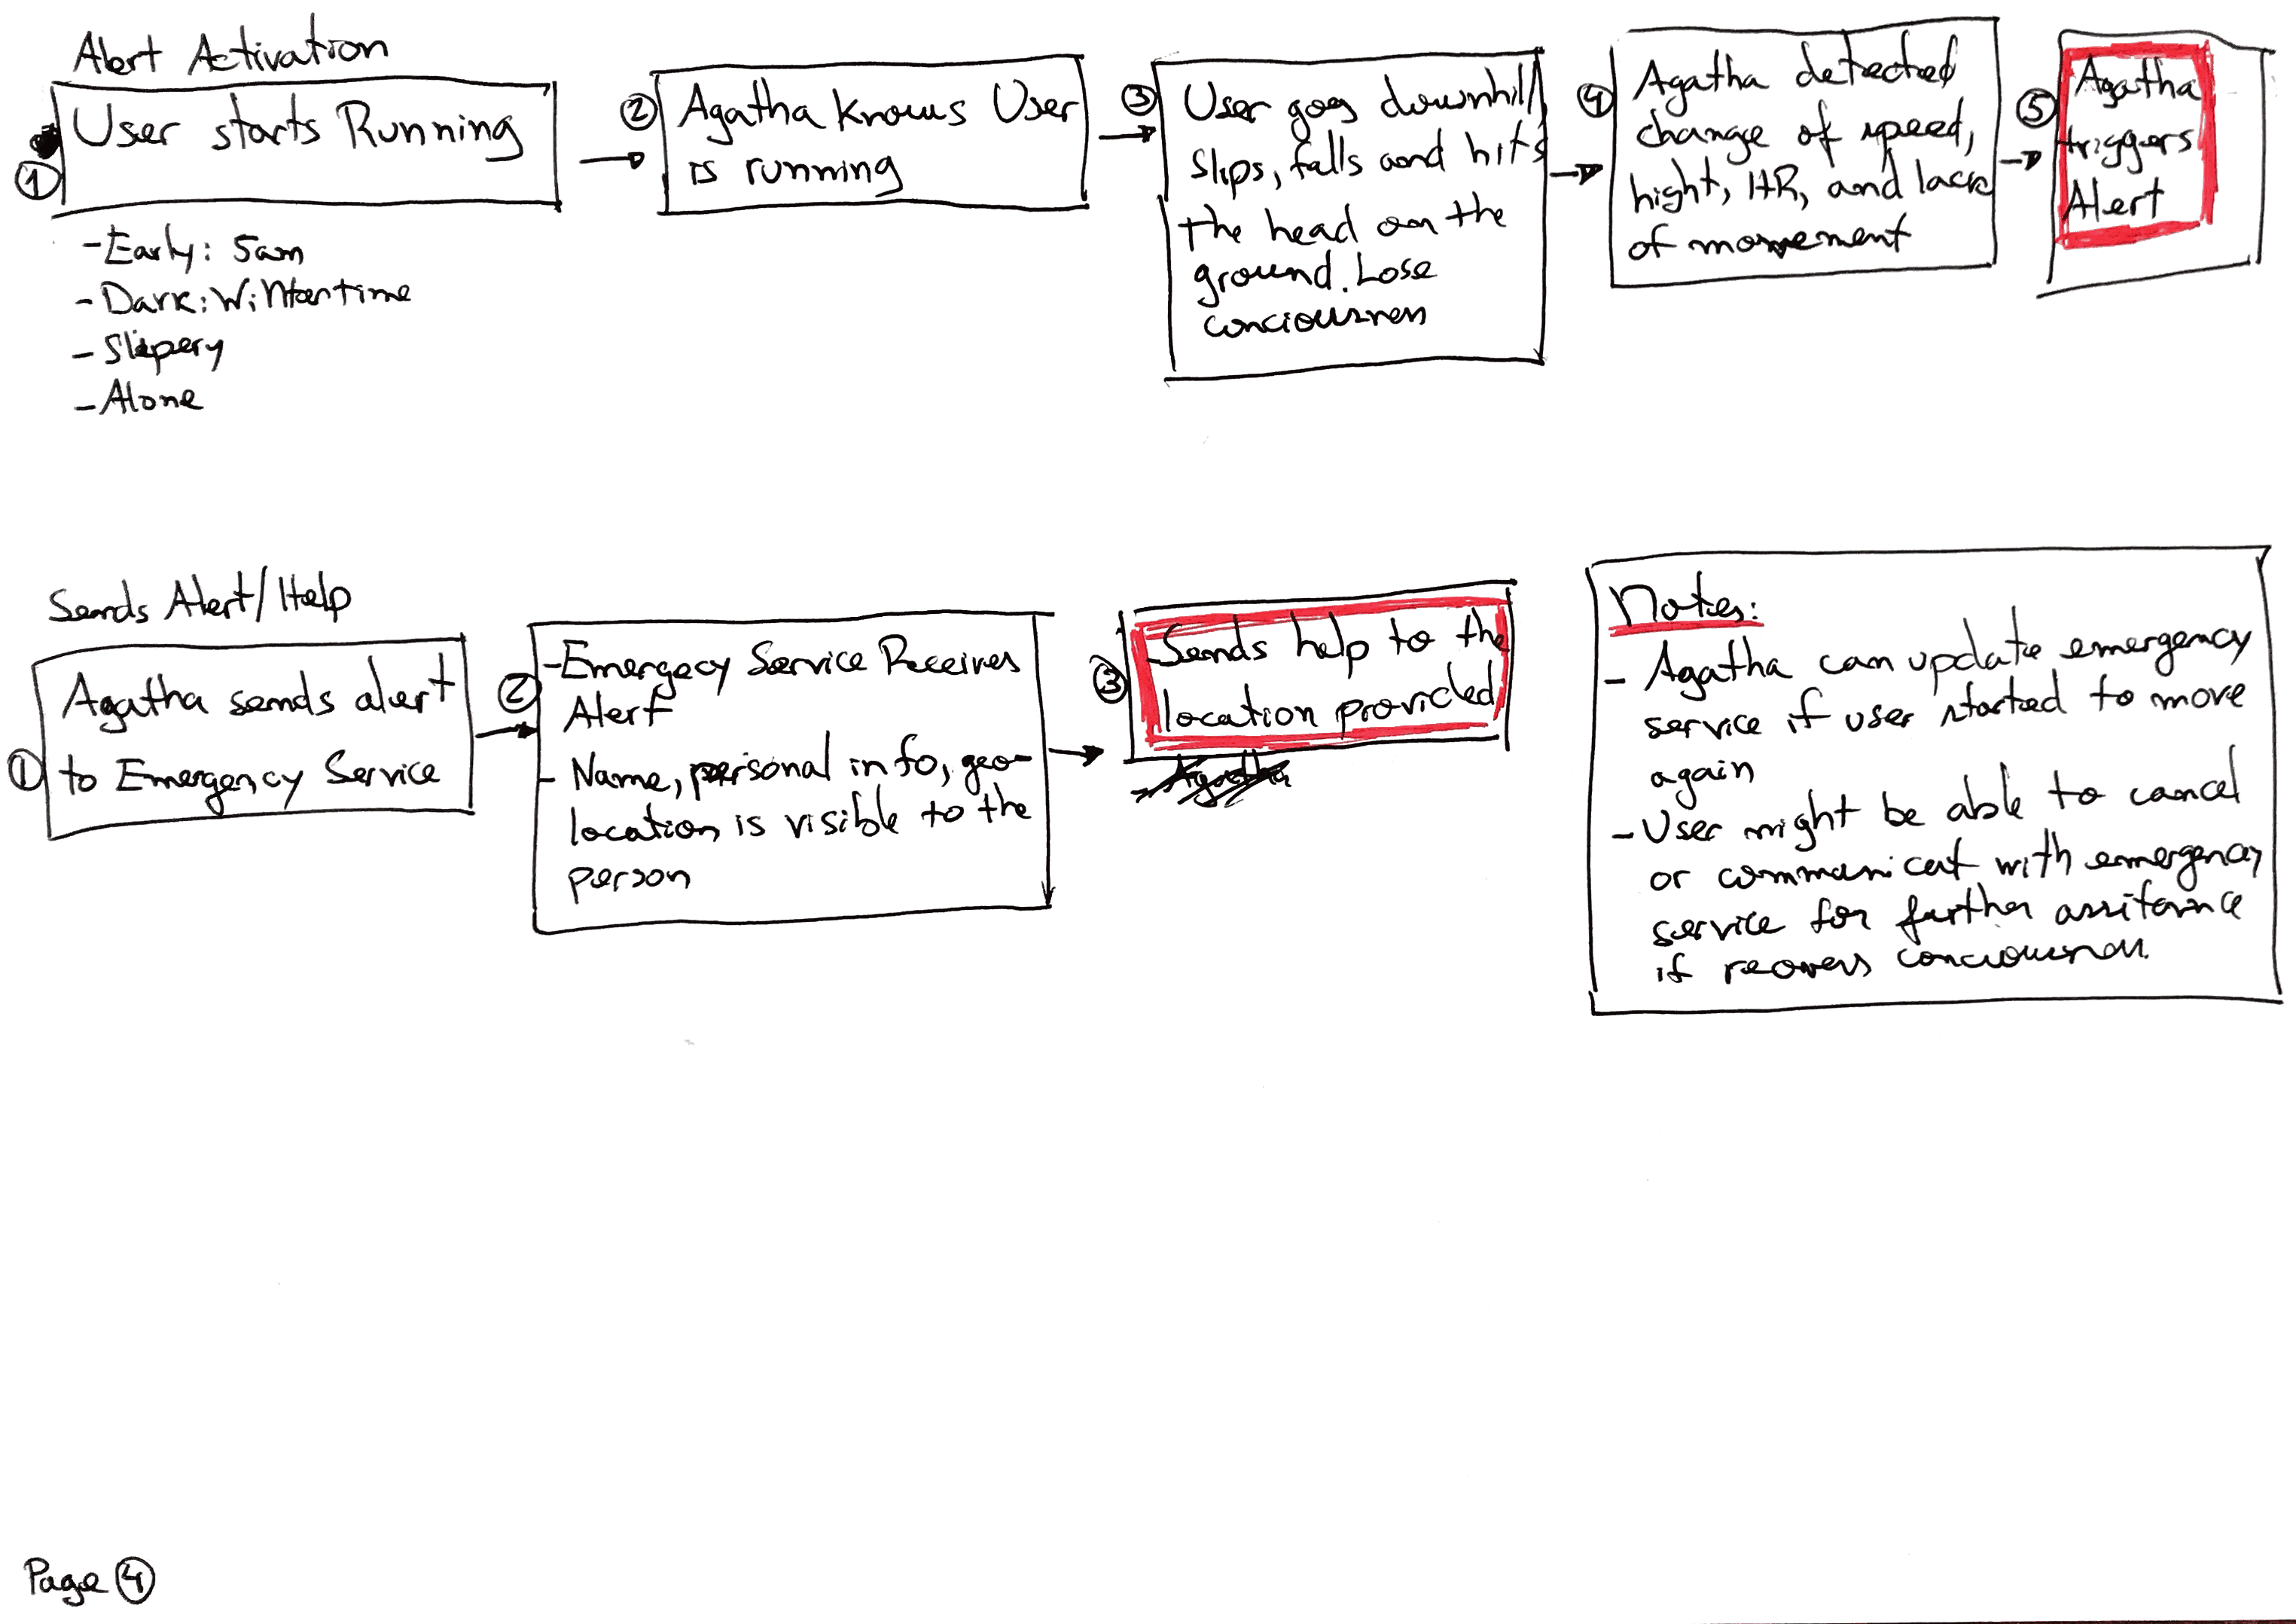 Alert Activation
① User starts Running
- Early: 5am
- Dark: Wintertime
- Slipery
- Alone
② Agatha knows User
is running
③ User goes downhill,
slips, falls and hits
the head on the
ground. Lose
conciousness
④ Agatha detected
change of speed,
hight, HR, and lack
of movement
⑤ Agatha
triggers
Alert
Sends Alert/Help
Agatha sends alert
① to Emergency Service
② - Emergecy Service Receives
Alert
- Name, personal info, geo-
location is visible to the
person
③ Sends help to the
location provided
- Agatha
Notes:
- Agatha can update emergency
service if user started to move
again
- User might be able to cancel
or communicat with emergency
service for further assitance
if recovers conciousness.
Page ④